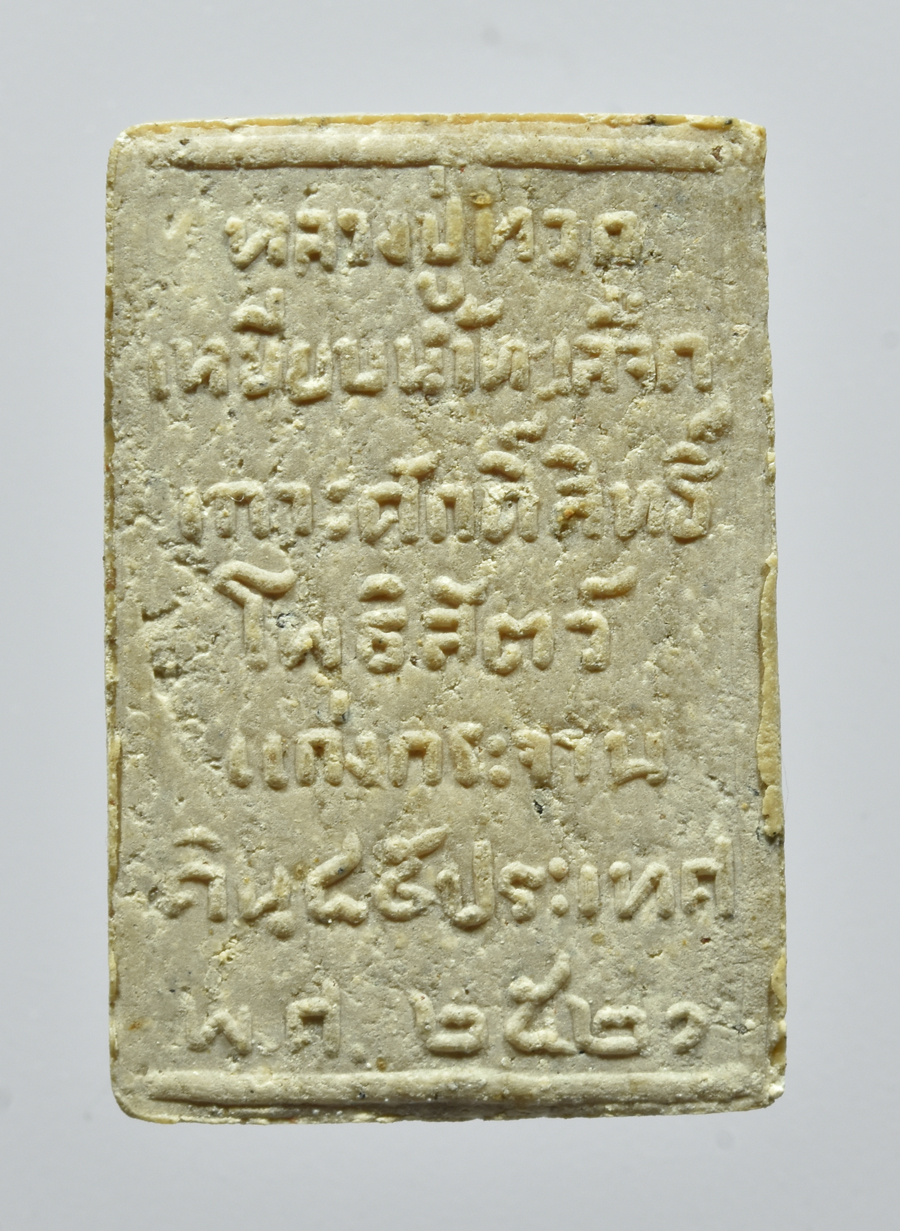 หลวงปู่ทวด
เหยียบน้ำทะเลจืด
เกาะศักดิ์สิทธิ์
โพธิสัตว์
แก่งกระจาน
ดิน ๔๕ ประเทศ
พ.ศ. ๒๕๒๙